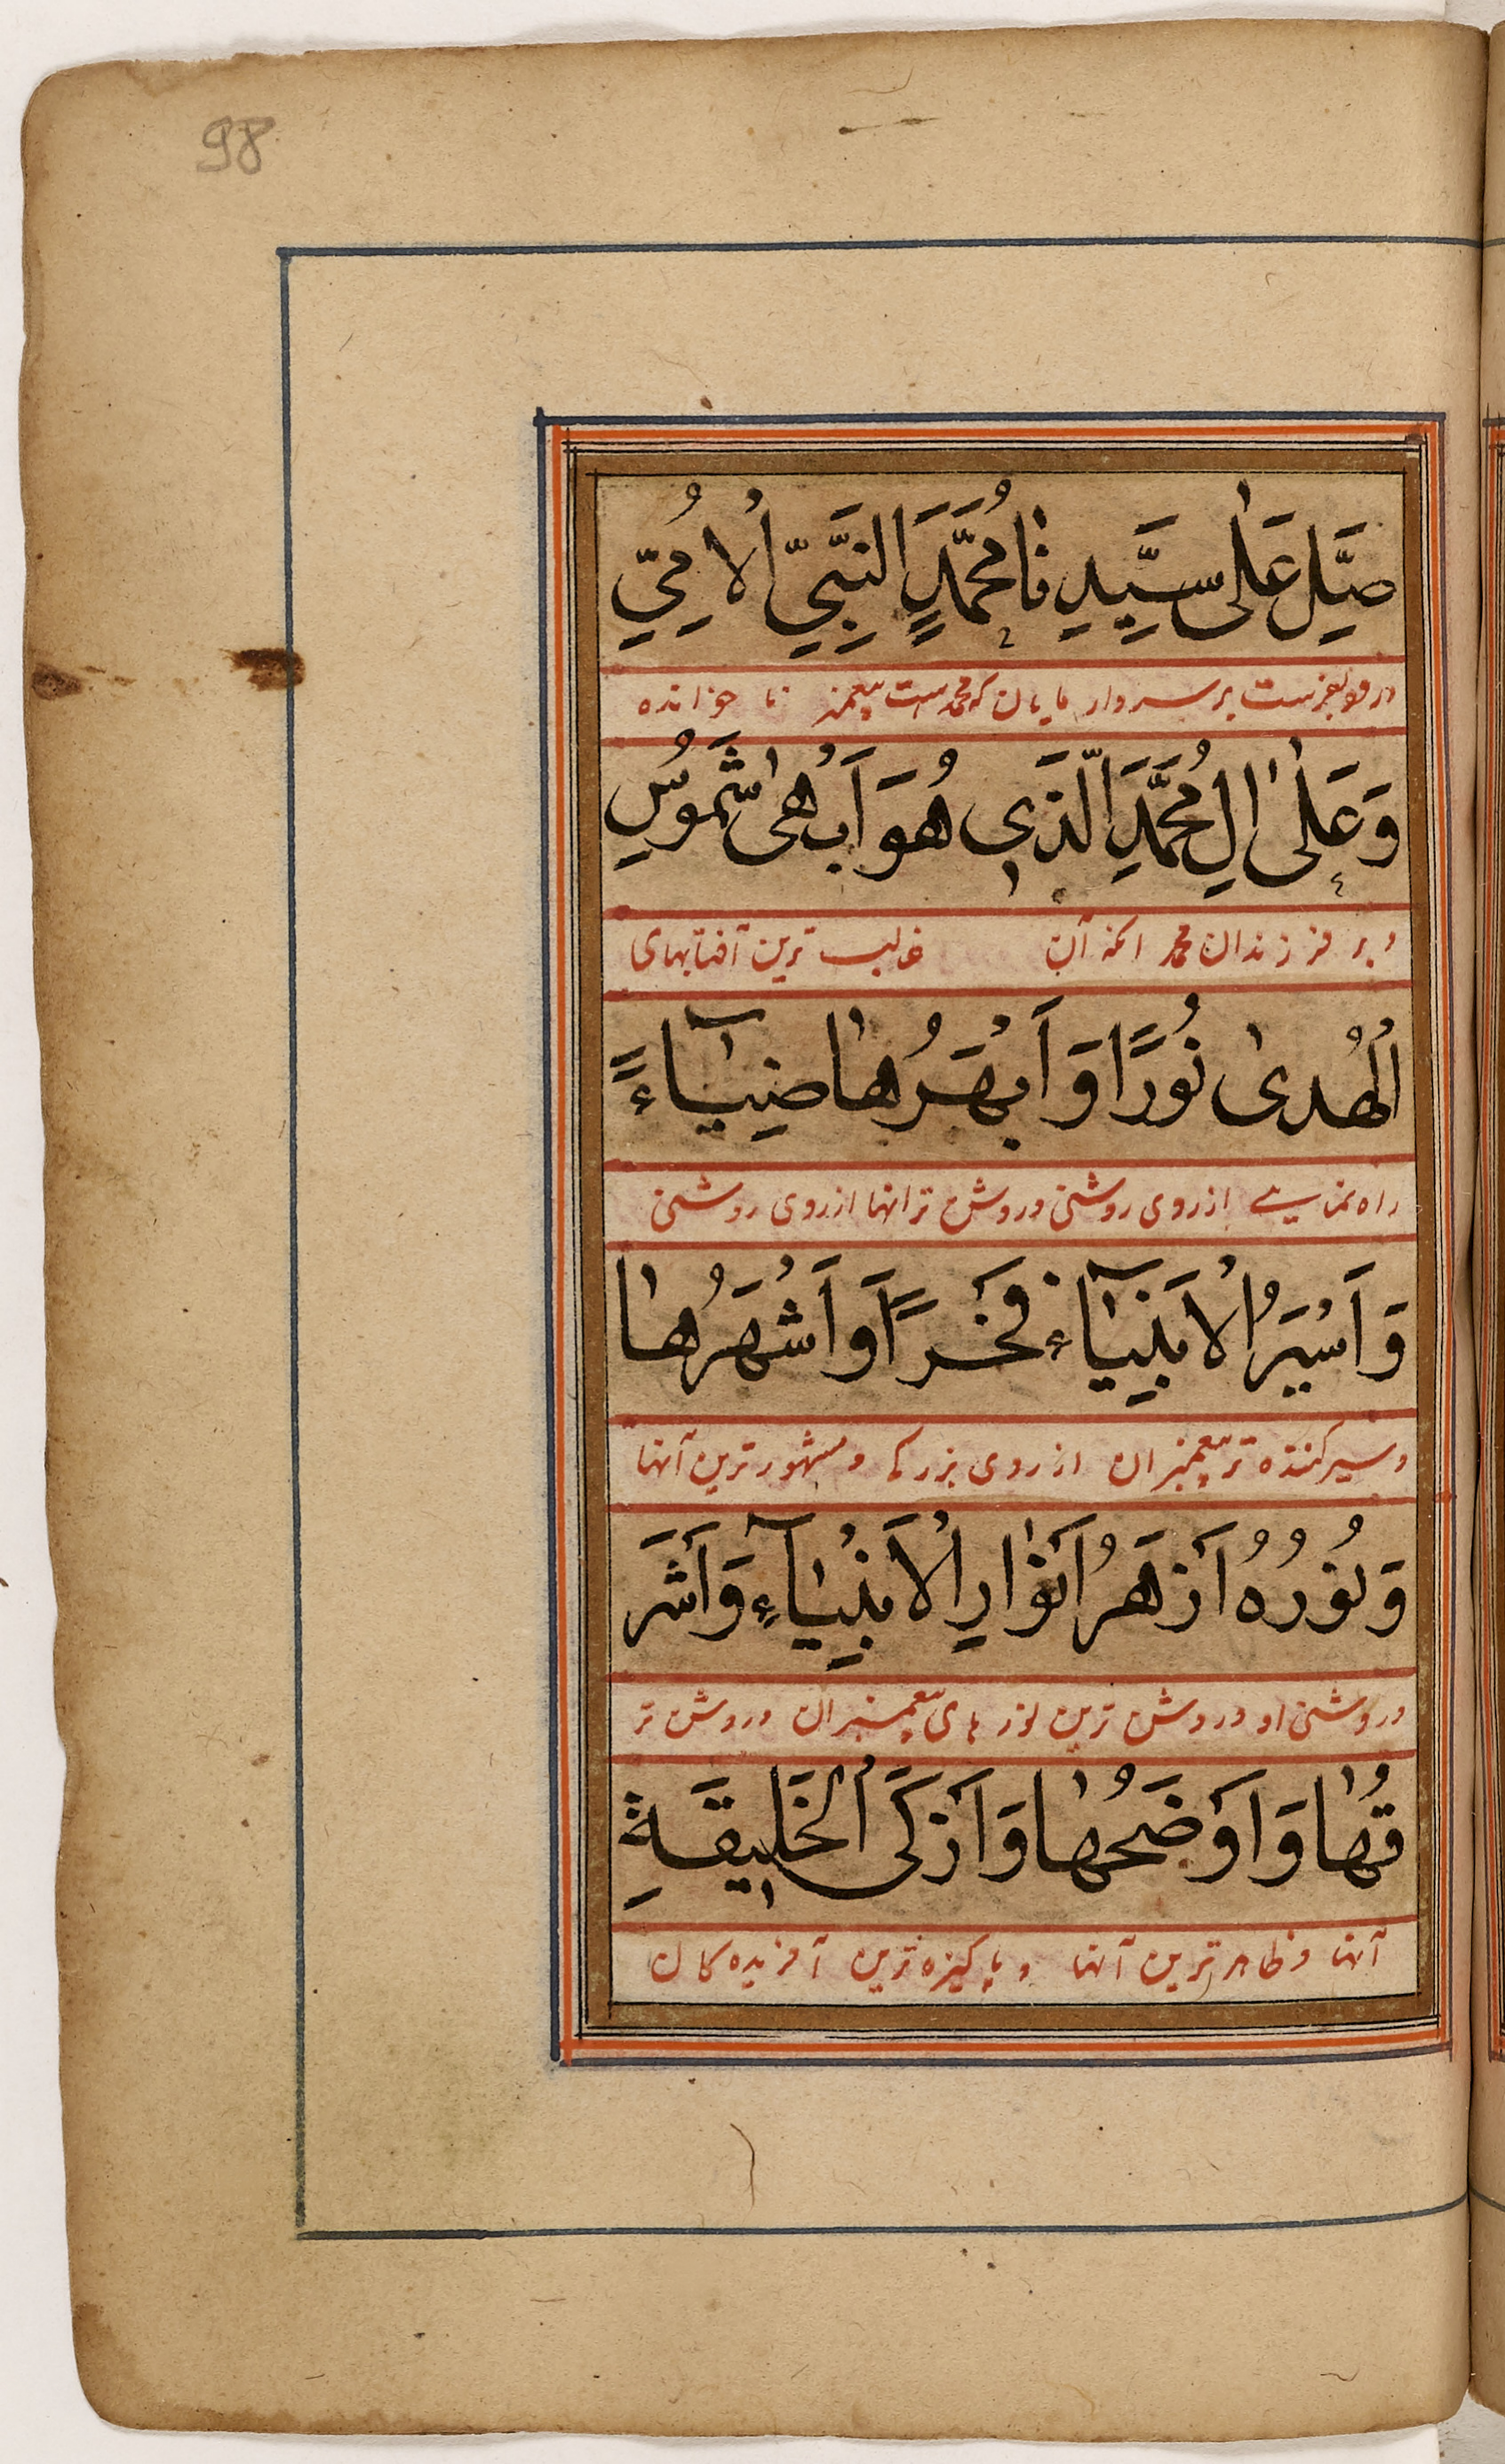 98
صَلِّ عَلٰى سَيِّدِنَا مُحَمَّدٍ النَّبِيِّ الْاُمِّيِّ
بر سردار مایان که محمدست پیغمبر نا خوانده
وَعَلٰى اٰلِ مُحَمَّدِ الَّذَى هُوَ اَبْهٰى شَمُوْسِ
و بر فرزندان محمد انکه آن غالب ترین آفتابهای
الْهُدٰى نُوْرًا وَ اَبْهَرُهَا ضِيَآءً
راه نمایی از روی روشنی و روشن تر انها از روی روشنی
وَ اَسْيَرُ الْاَنْبِيَآءِ فَخْرًا وَ اَشْهَرُهَا
و سیر کننده تر پیغمبران از روی بزرکی و مشهور ترین آنها
وَ نُوْرُهُ اَزْهَرُ اَنْوَارِ الْاَنْبِيَآءِ وَ اَشْرَ
و روشنی او روشن ترین نور های پیغمبران و روشن تر
قُهَا وَ اَوْضَحُهَا وَ اَزْكَى الْخَلِيْقَةِ
آنها و ظاهر ترین آنها و پاکیزه ترین آفریده کان